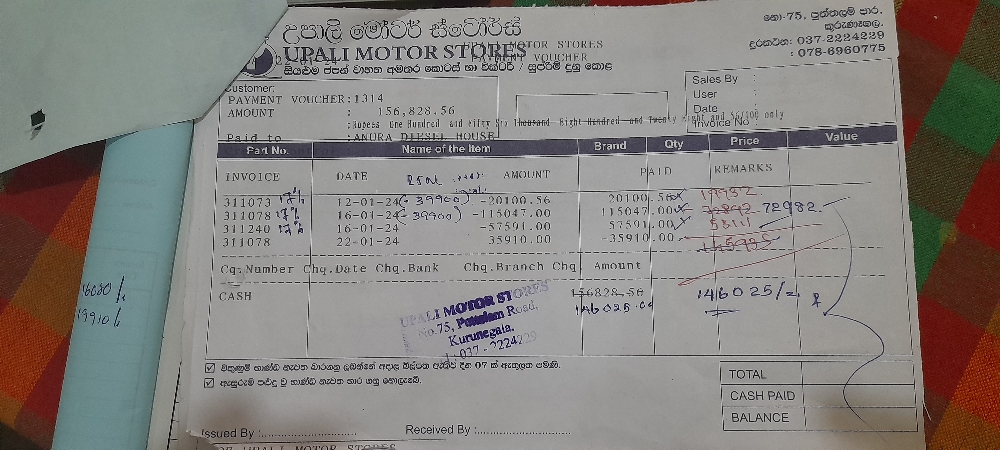 උපාලි මෝටර් ස්ටෝර්ස්
නො-75, පුත්තලම් පාර.
කුරුණෑගල.
දුරකථන: 037-2224229
: 078-6960775
UPALI MOTOR STORES
MOTOR STORES
VOUCHER
සියළුම ජපන් වාහන අමතර කොටස් හා
Customer:
PAYMENT VOUCHER:1314
AMOUNT : 156,828.56
:Rupees One Hundred and Fifty Six Thousand Eight Hundred and Twenty Eight and 56/100 only
Paid to : ANURA DIESEL HOUSE
Sales By :
User :
Date
Invoice No
Part No. Name of the Item Brand Qty Price Value
INVOICE DATE AMOUNT PAID REMARKS
311073 17% 12-01-24 (-39900) -20100.56 20100.56 19992
311078 17% 16-01-24 (-39900) -115047.00 115047.00 72982
311240 17% 16-01-24 -57591.00 57591.00
311078 22-01-24 35910.00 -35910.00
Cq.Number Chq.Date Chq.Bank Chq.Branch Chq. Amount
CASH 156828.56 146025/=
146025.00
UPALI MOTOR STORES
No.75, Puttalam Road,
Kurunegala.
: 037 - 2224229
TOTAL
CASH PAID
BALANCE
Issued By : Received By :
UPALI MOTOR STORES
19910/